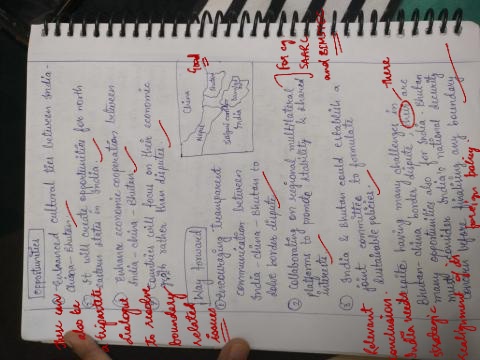 Opportunities
① Enhanced cultural ties between India-
China-Bhutan.
② It will create opportunities for north
eastern states in India.
③ Enhance economic cooperation between
India-china-Bhutan.
④ Countries will focus on their economic
gain rather than disputes.
There can
also be
tripartite
Dialogue
to resolve
boundary
related
issues
Good
China
Nepal
Bhutan
India
Way forward
① Encouraging transparent
communication between
India-china-Bhutan to
solve border dispute.
② Collaborating on regional multilateral
platforms to promote stability & shared
interests
For eg
SAARC
and BIMSTEC
③ India & Bhutan could establish a
joint committee to formulate
sustainable policies.
Relevant
conclusion
India needs
strategic
realignment
of its
foreign policy
having many challenges in
Bhutan-china border dispute, there are
There
many opportunities also for India-Bhutan
must consider India's national security
concern before finalizing any boundary